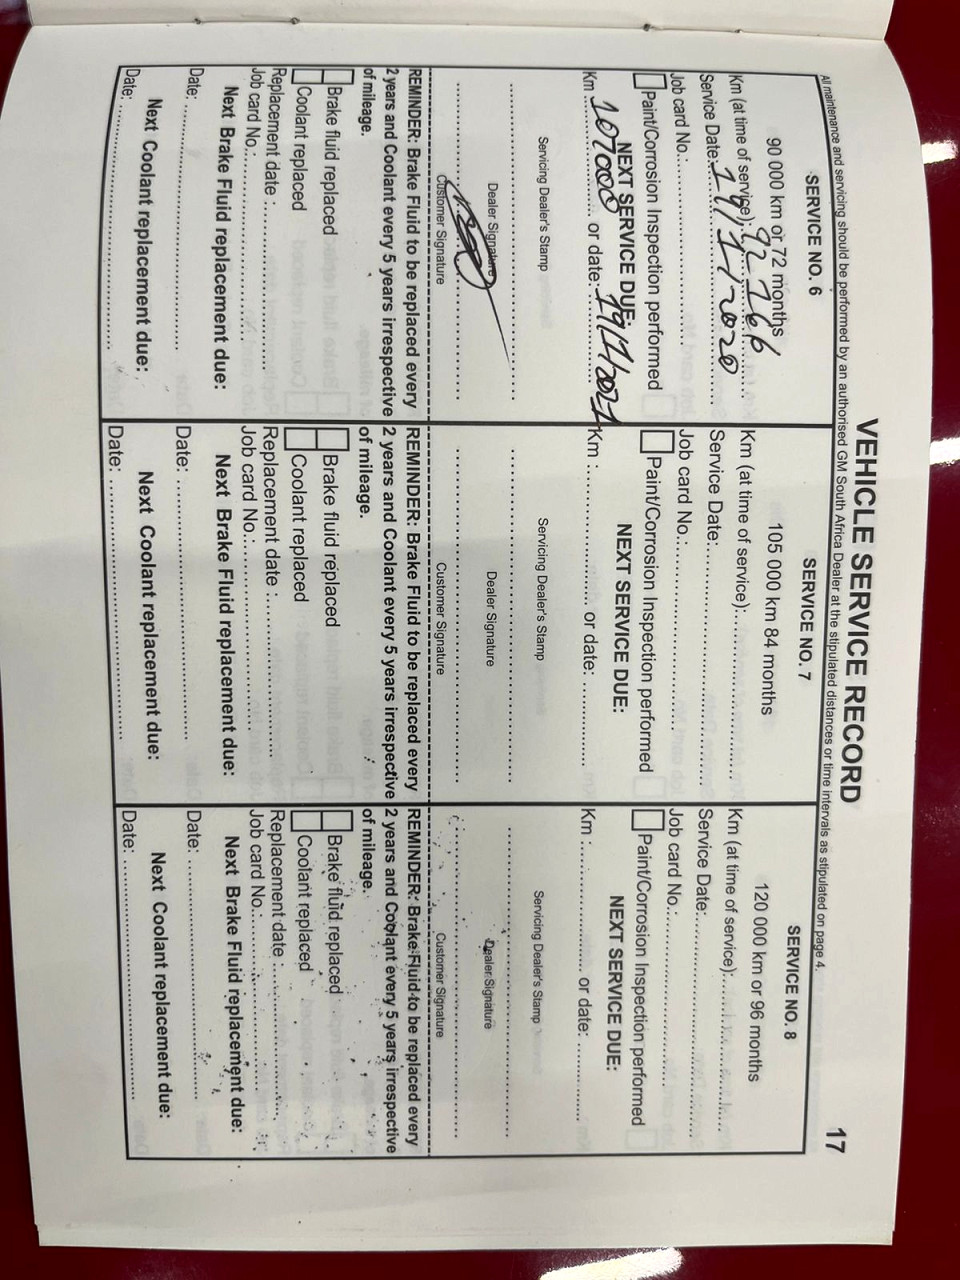 VEHICLE SERVICE RECORD
17
All maintenance and servicing should be performed by an authorised GM South Africa Dealer at the stipulated distances or time intervals as stipulated on page 4.
SERVICE NO. 6
90 000 km or 72 months
Km (at time of service): 92 266
Service Date: 19/11/2020
Job card No.:
Paint/Corrosion Inspection performed
NEXT SERVICE DUE:
Km 107000 or date: 19/11/2021
Servicing Dealer's Stamp
Dealer Signature
Customer Signature
REMINDER: Brake Fluid to be replaced every
2 years and Coolant every 5 years irrespective
of mileage.
Brake fluid replaced
Coolant replaced
Replacement date :
Job card No.:
Next Brake Fluid replacement due:
Date:
Next Coolant replacement due:
Date:
SERVICE NO. 7
105 000 km 84 months
Km (at time of service):
Service Date:
Job card No.:
Paint/Corrosion Inspection performed
NEXT SERVICE DUE:
Km : or date:
Servicing Dealer's Stamp
Dealer Signature
Customer Signature
REMINDER: Brake Fluid to be replaced every
2 years and Coolant every 5 years irrespective
of mileage.
Brake fluid replaced
Coolant replaced
Replacement date :
Job card No.:
Next Brake Fluid replacement due:
Date:
Next Coolant replacement due:
Date:
SERVICE NO. 8
120 000 km or 96 months
Km (at time of service):
Service Date:
Job card No.:
Paint/Corrosion Inspection performed
NEXT SERVICE DUE:
Km : or date:
Servicing Dealer's Stamp
Dealer Signature
Customer Signature
REMINDER: Brake Fluid to be replaced every
2 years and Coolant every 5 years irrespective
of mileage.
Brake fluid replaced
Coolant replaced
Replacement date :
Job card No.:
Next Brake Fluid replacement due:
Date:
Next Coolant replacement due:
Date: